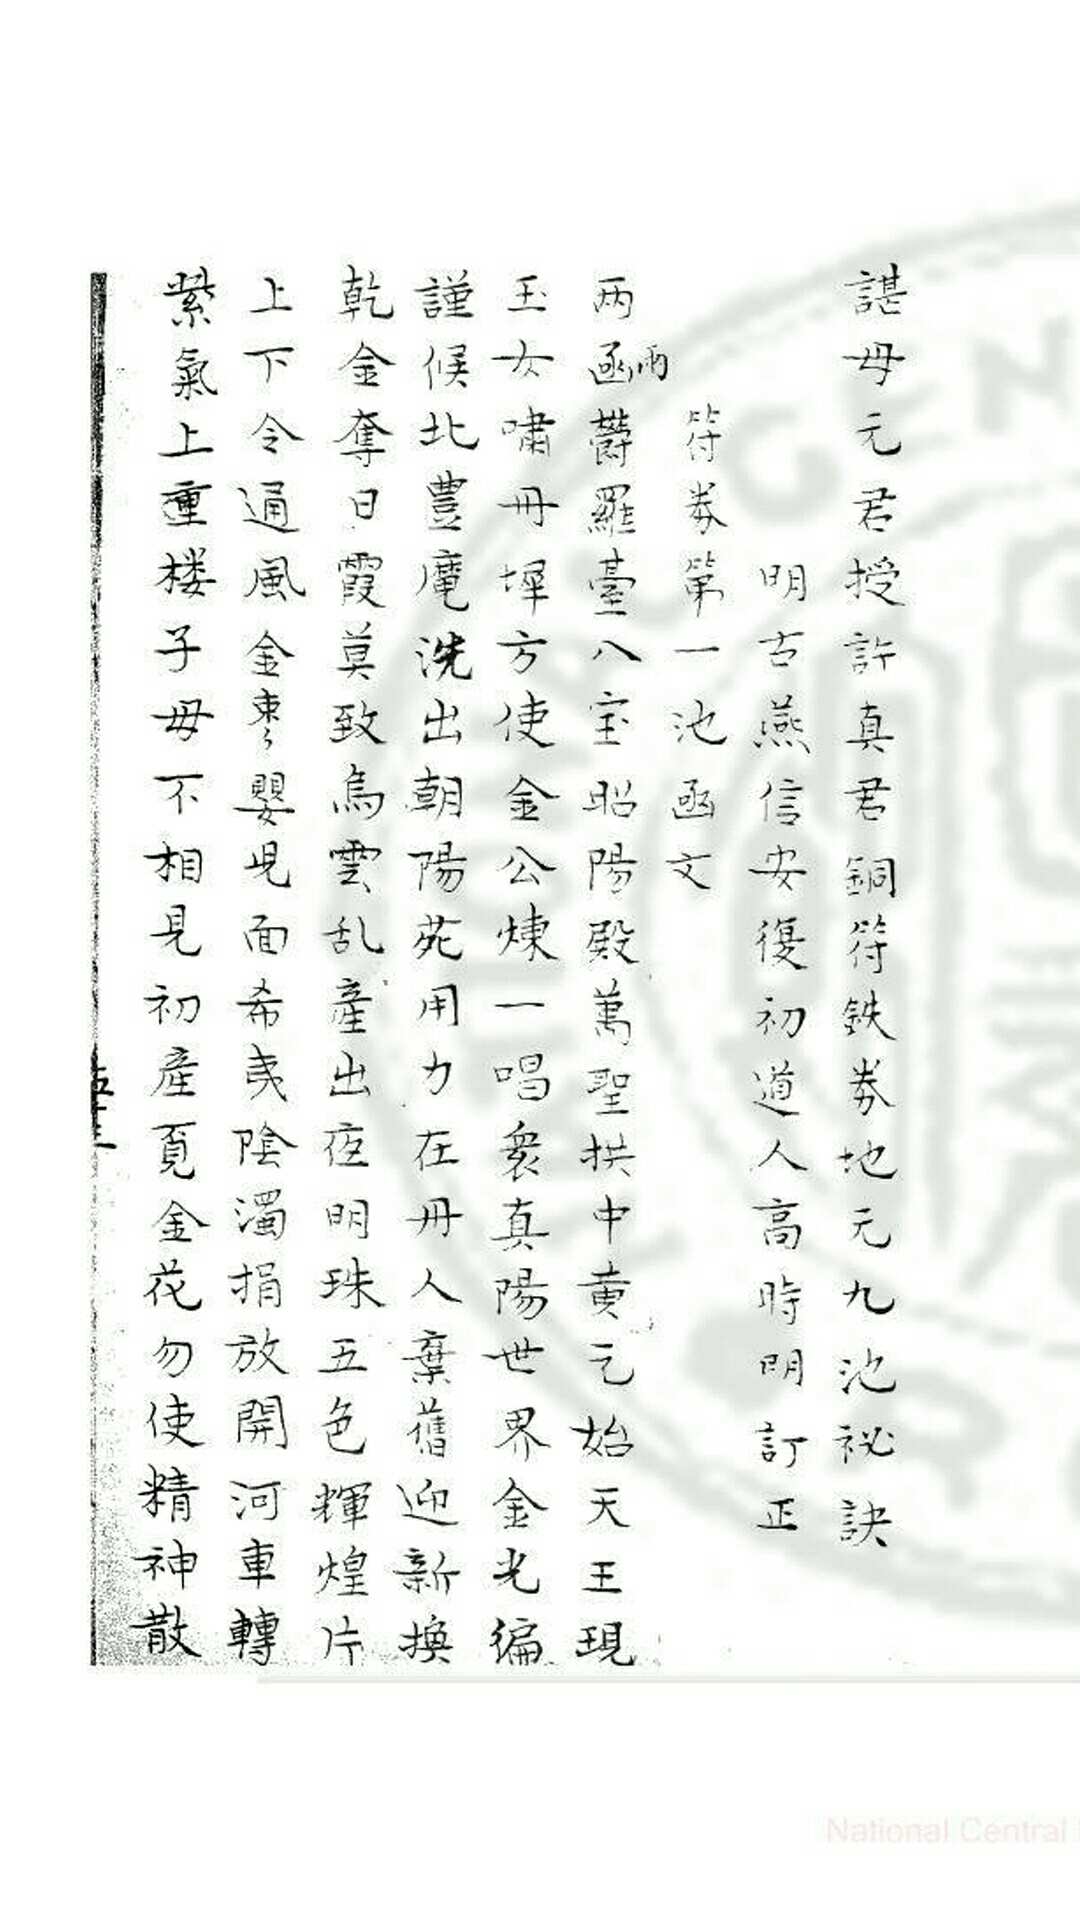 諶母元君授許真君銅符鉄券地元九池祕訣
明古燕信安復初道人高時明訂正
符券第一池函文
両函欝羅臺八室昭陽殿萬聖拱中黄元始天王現
雨
玉女嘯丹墀方使金公煉一唱衆真陽世界金光徧
謹候北豊庵洗出朝陽苑用力在丹人棄舊迎新換
乾金奪日霞莫致烏雲乱產出夜明珠五色輝煌片
上下令通風金束々嬰児面希夷陰濁捐放開河車轉
紫氣上重楼子母不相見初產覓金花勿使精神散
National Central